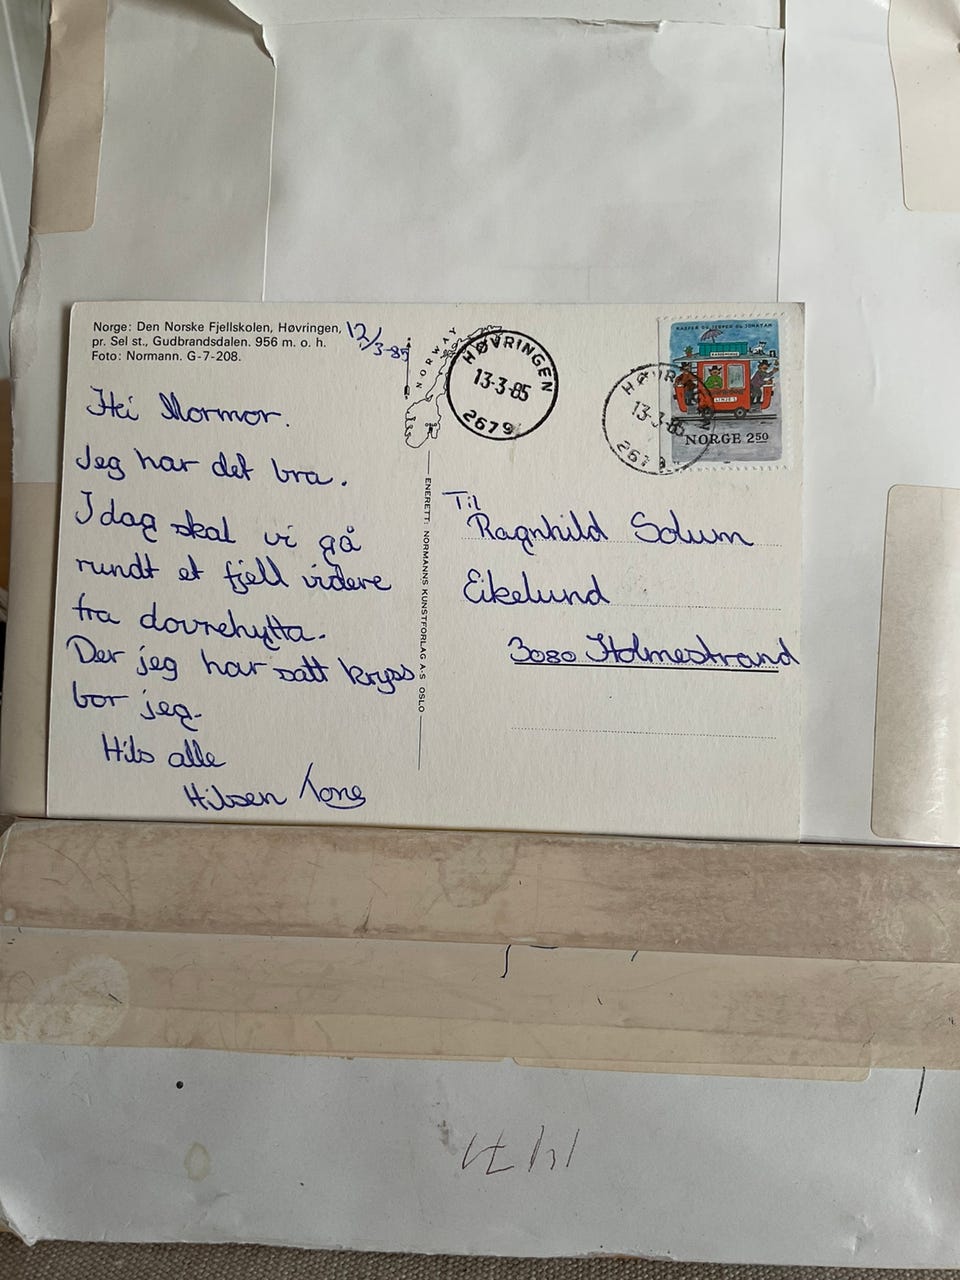 Norge: Den Norske Fjellskolen, Høvringen,
pr. Sel st., Gudbrandsdalen. 956 m. o. h.
Foto: Normann. G-7-208.
12/3-85
Hei Mormor.
Jeg har det bra.
I dag skal vi gå
rundt et fjell videre
fra dovrehytta.
Der jeg har satt kryss
bor jeg.
Hils alle
Hilsen Tone
NORWAY
OSLO
ENERETT: NORMANNS KUNSTFORLAG A·S OSLO
HØVRINGEN
13-3-85
2679
HØVRINGEN
13-3-85
2679
KASPER OG JESPER OG JONATAN
NORGE 250
Til
Ragnhild Solum
Eikelund
3080 Holmestrand